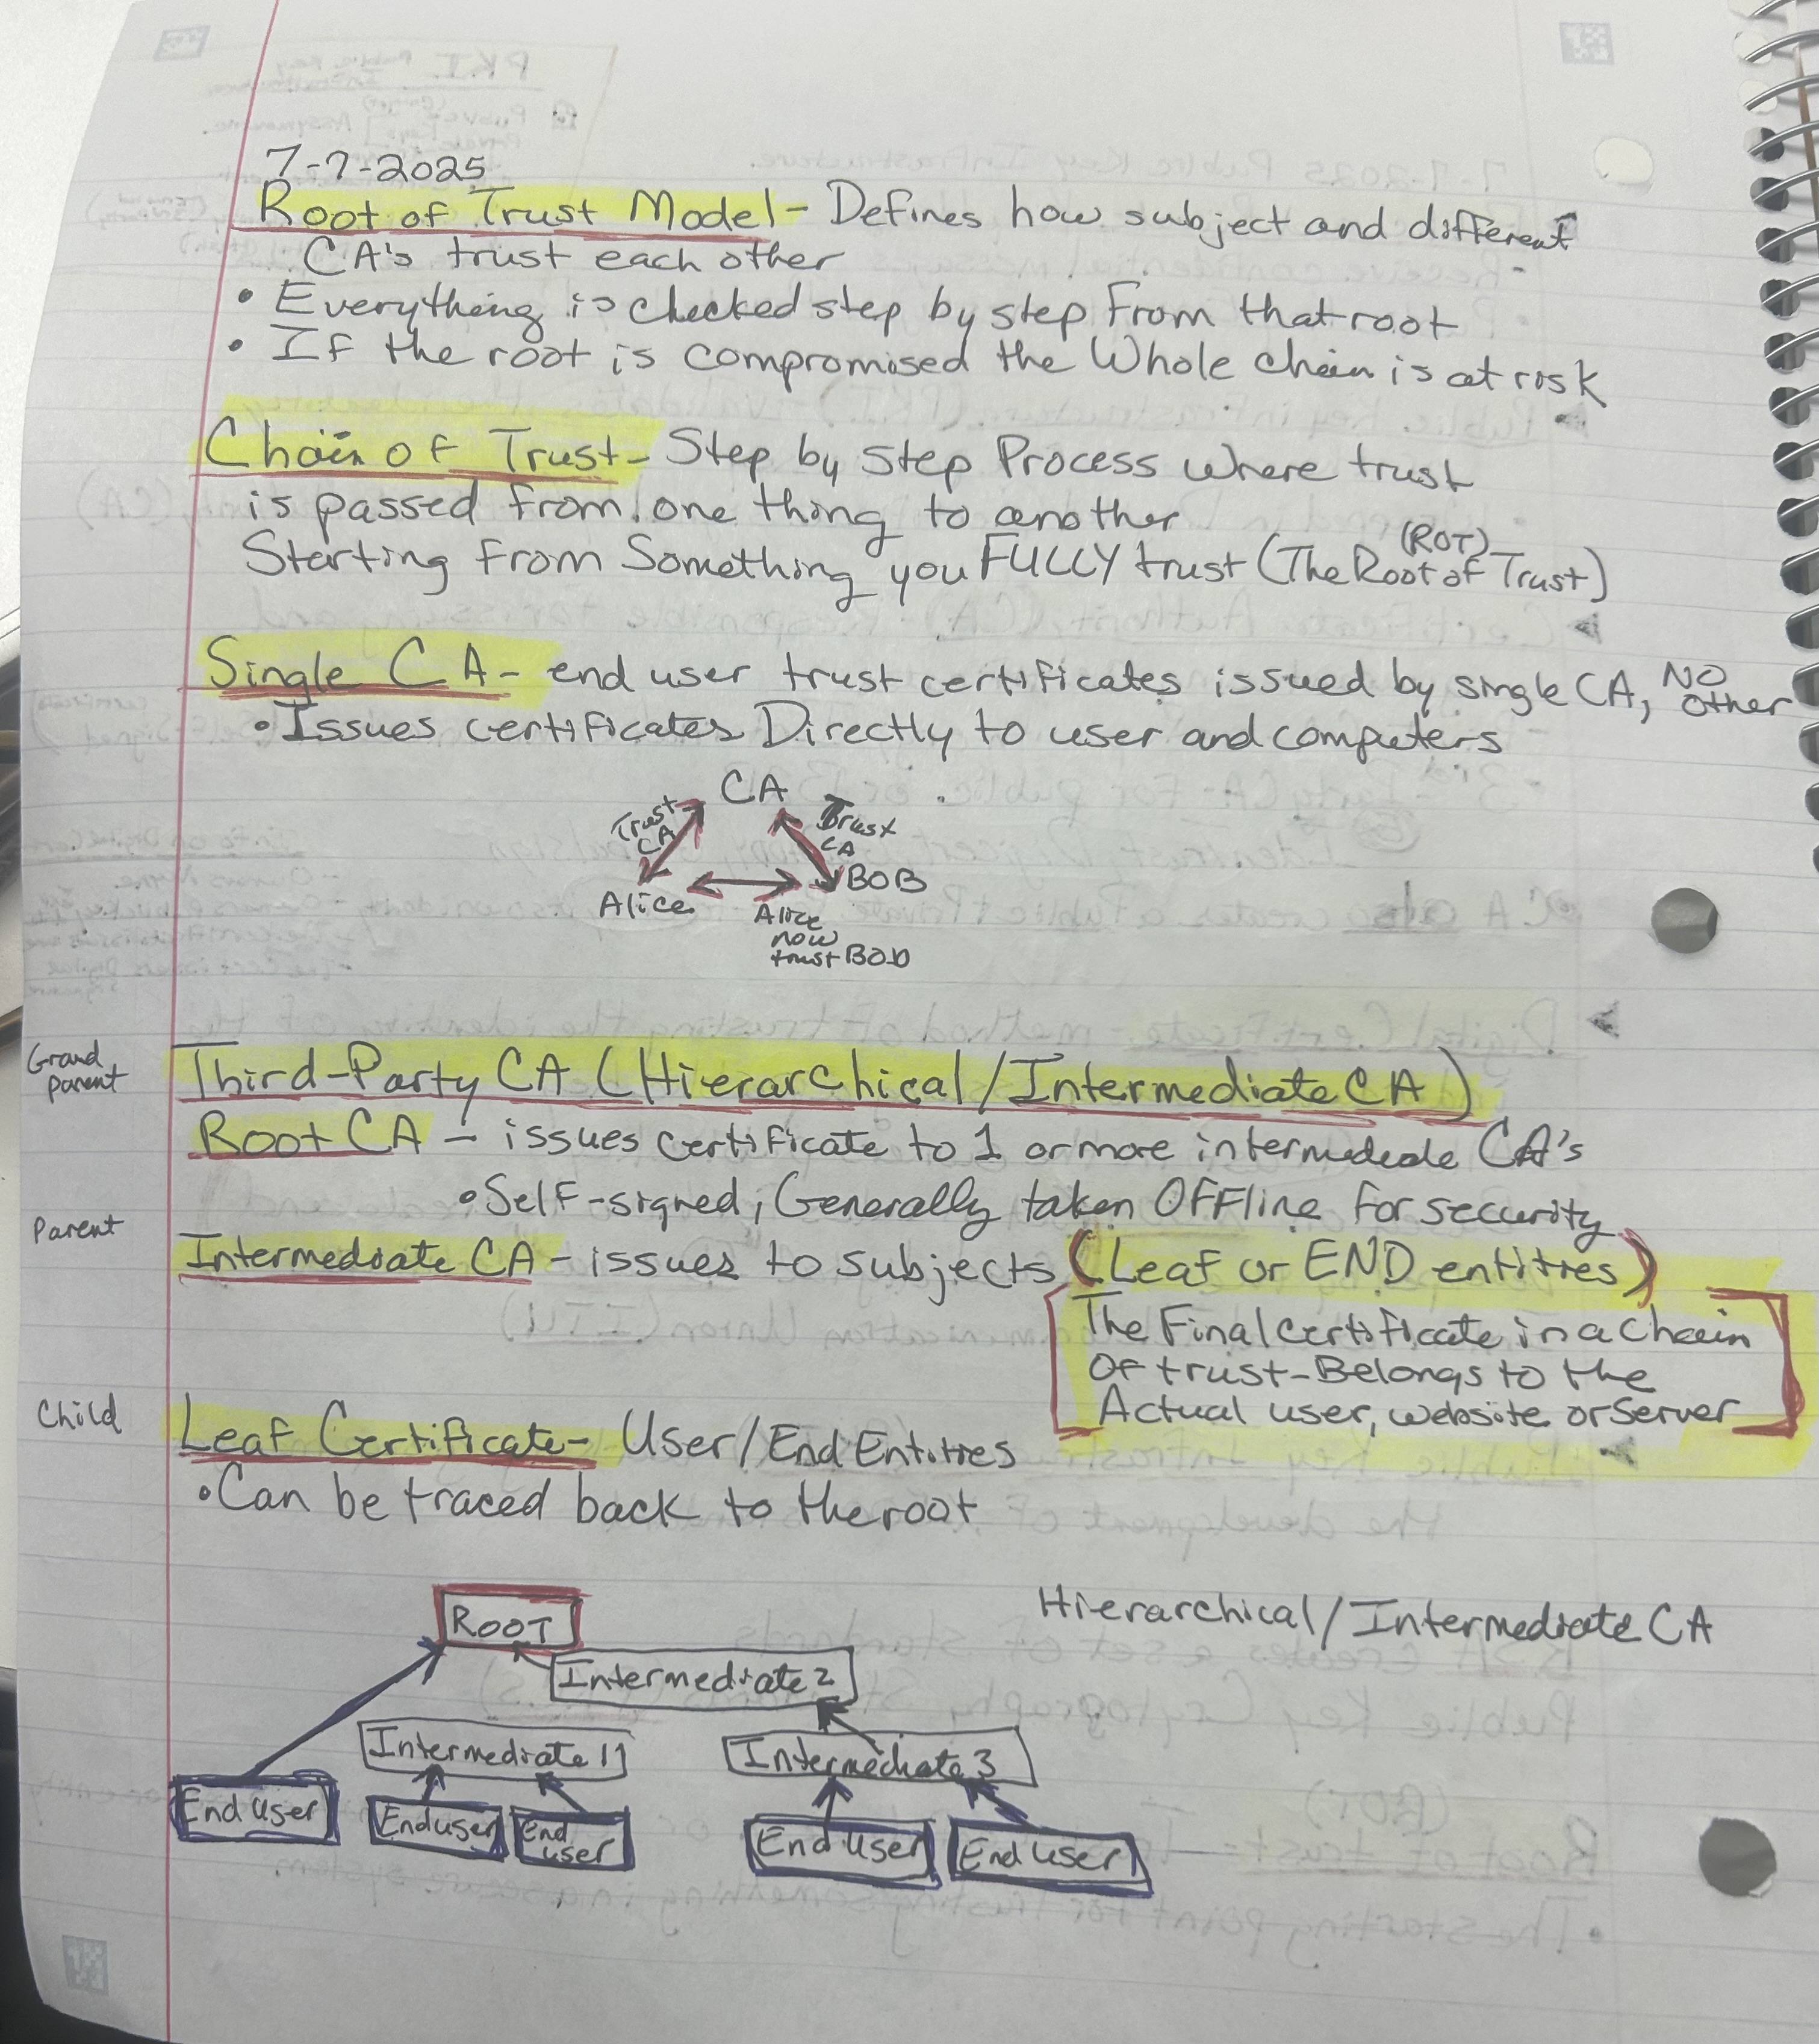 7-7-2025
Root of Trust Model - Defines how subject and different
CA's trust each other
• Everything is checked step by step From that root
• If the root is compromised the Whole chain is at risk
Chain of Trust - Step by Step Process where trust
is passed from one thing to another
(ROT)
Starting from Something you FULLY trust (The Root of Trust)
Single CA - end user trust certificates issued by single CA, NO other
• Issues certificates Directly to user and computers
CA
Trust CA
Trust CA
Alice
BOB
Alice now trust BOB
Grand parent
Third-Party CA (Hierarchical/Intermediate CA)
Root CA - issues certificate to 1 or more intermediate CA's
• Self-signed, Generally taken OFFline for security
Parent
Intermediate CA - issues to subjects (Leaf or END entities)
The Final certificate in a chain
OF trust - Belongs to the
Actual user, website or server
Child
Leaf Certificate - User/End Entities
• Can be traced back to the root
Hierarchical/Intermediate CA
ROOT
Intermediate 2
Intermediate 1
Intermediate 3
End User
End user
End user
End User
End User